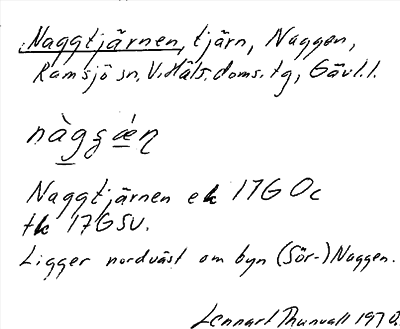 Naggtjärnen, tjärn, Naggen,
Ramsjö sn, V. Häls. doms. tg, Gävl. l.
nàgg ǽn
Naggtjärnen ek 17G 0c
tk 17G SV.
Ligger nordväst om byn (Sör-)Naggen.
Lennart Thunvall 1970.